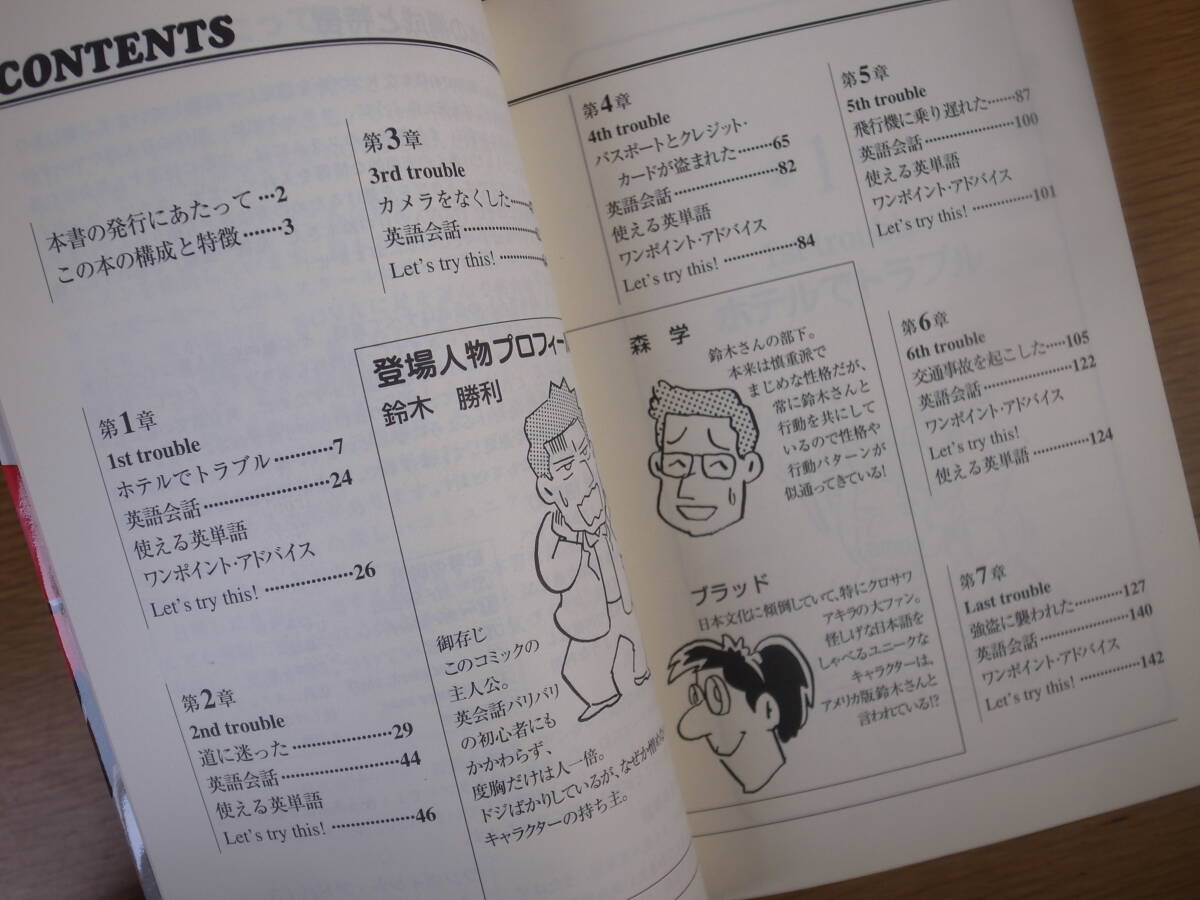 CONTENTS
本書の発行にあたって…2
この本の構成と特徴……3
第1章
1st trouble
ホテルでトラブル………7
英語会話………24
使える英単語
ワンポイント・アドバイス
Let's try this!………26
第2章
2nd trouble
道に迷った………29
英語会話………44
使える英単語
Let's try this!………46
第3章
3rd trouble
カメラをなくした……
英語会話………
Let's try this!………
登場人物プロフィー
鈴木 勝利
御存じ
このコミックの
主人公。
英会話バリバリ
の初心者にも
かかわらず、
度胸だけは人一倍。
ドジばかりしているが、なぜか憎めな
キャラクターの持ち主。
第4章
4th trouble
パスポートとクレジット・
カードが盗まれた………65
英語会話………82
使える英単語
ワンポイント・アドバイス
Let's try this!………84
森 学
鈴木さんの部下。
本来は慎重派で
まじめな性格だが、
常に鈴木さんと
行動を共にして
いるので性格や
行動パターンが
似通ってきている!
ブラッド
日本文化に傾倒していて、特にクロサワ
アキラの大ファン。
怪しげな日本語を
しゃべるユニークな
キャラクターは、
アメリカ版鈴木さんと
言われている!?
第5章
5th trouble
飛行機に乗り遅れた……87
英語会話………100
使える英単語
ワンポイント・アドバイス
Let's try this!………101
第6章
6th trouble
交通事故を起こした……105
英語会話………122
ワンポイント・アドバイス
Let's try this!
使える英単語………124
第7章
Last trouble
強盗に襲われた………127
英語会話………140
ワンポイント・アドバイス
Let's try this!………142